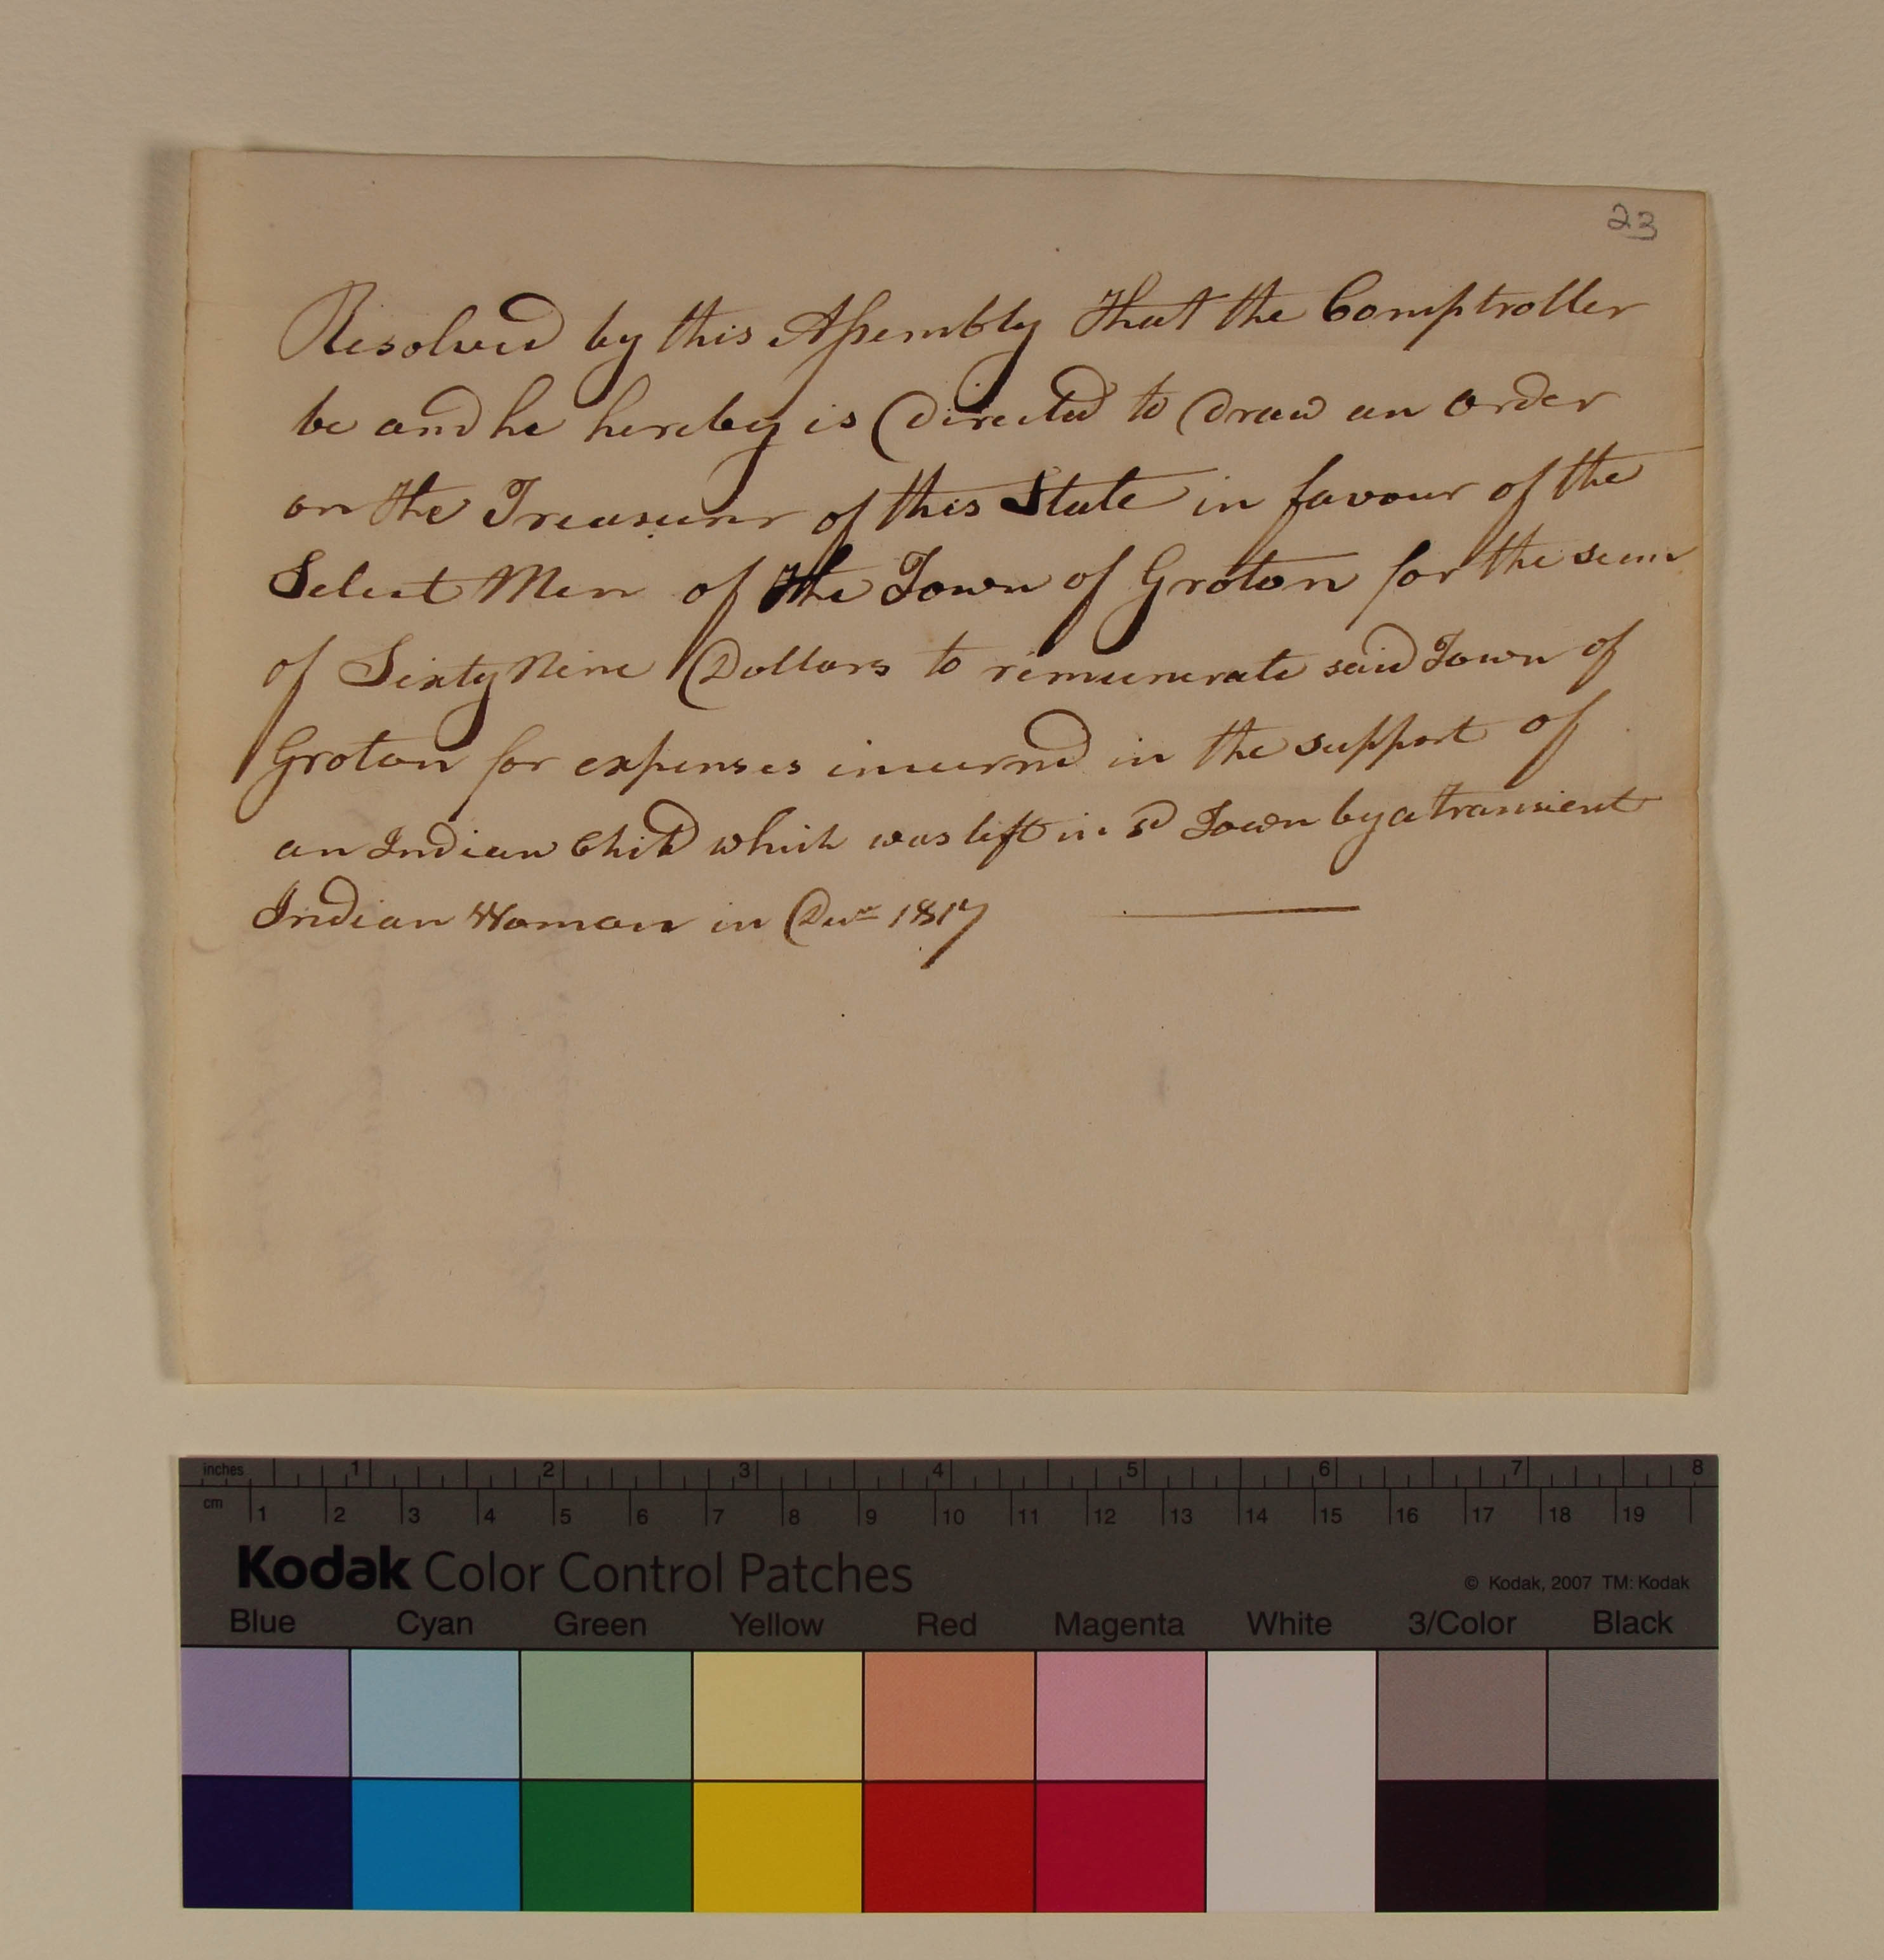 23
Resolved by this Assembly That the Comptroller
be and he hereby is Directed to Draw an order
on the Treasurer of this State in favour of the
Select Men of the Town of Groton for the sum
of Sixty Nine Dollars to remunerate said Town of
Groton for expenses incurred in the support of
an Indian Child which was left in sd Town by a transient
Indian Woman in Decr 1817
inches 1 2 3 4 5 6 7 8
cm 1 2 3 4 5 6 7 8 9 10 11 12 13 14 15 16 17 18 19
Kodak Color Control Patches
© Kodak, 2007 TM: Kodak
Blue Cyan Green Yellow Red Magenta White 3/Color Black